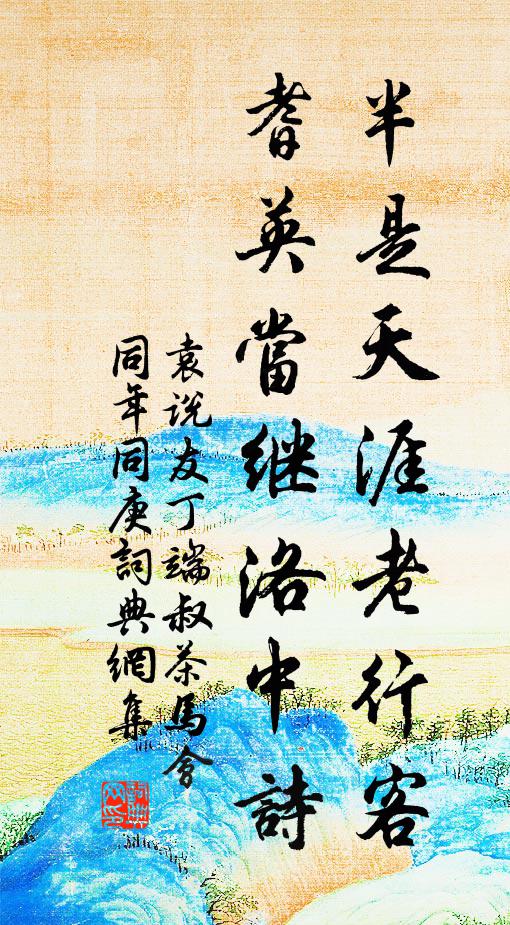 半是天涯老行客
耆英當继洛中詩
袁说友丁端叔茶馬會
同年同庚詞典網集